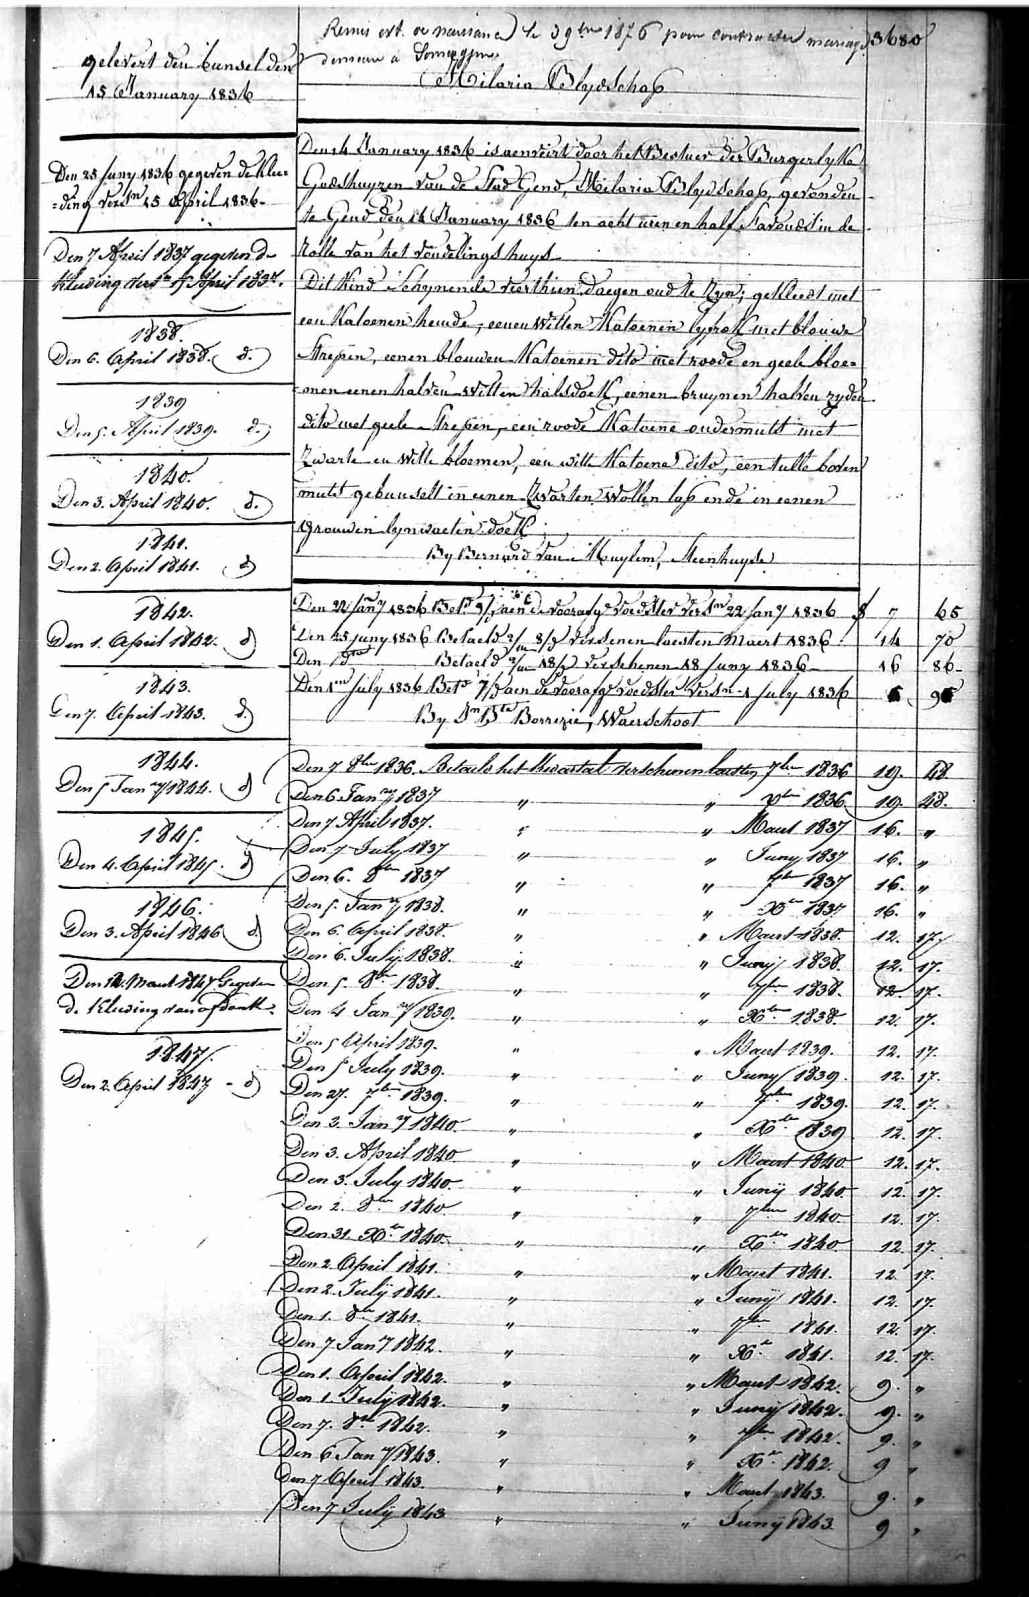 Remis ext. de naissance le 3 9bre 1876 pour contracter mariage
3680
demeure a
Hilaria Blydschap
gelevert den bunsel den
15 January 1836
Den 25 juny 1836 gegeven de klee-
=ding versn 15 April 1836
Den 7 April 1837 gegeven de
kleeding versn 15 April 1837.
1838.
Den 6. April 1838. d.
1839
Den 5. April 1839. d.
1840.
Den 3. April 1840. d.
1841.
Den 2. April 1841. d
1842.
Den 1. April 1842. d
1843.
Den 7. April 1843. d.
1844.
Den 5 Jany 1844. d
1845.
Den 4. April 1845. d
1846.
Den 3. April 1846 d
Den 12 Maart 1847 Gegeven
de Kleeding van
1847.
Den 2. April 1847 - d
Den 14 January 1836 is aenveirt door het Bestuer der Burgerlyke
Godshuyzen van de Stad Gend, Hilaria Blydschap, gevonden
te Gend den 14 January 1836 ten acht uren en half s'avonds in de
Rolle van het vondelingshuys
Dit Kind Schynende veerthien daegen oud te Zyn; gekleest met
een Katoenen hemde, eenen Witten Katoenen lyfrok met blouwe
Strepen, eenen blouwen Katoenen dito met roode en geele bloe=
=men eenen halven Witten halsdoek, eenen bruynen halven zyden
dito met geele Strepen, een roode Katoene ondermuts met
Zwarte en Witte bloemen, een witte Katoene dito, een tulle boven
muts gebunselt in eenen Zwarten Wollen lap ende in eenen
grouwen lynwaeten doek
By Bernard Van Muylem, Steenhuyse
Den 22 Jany 1836 Betd aen de voorafge voedster versn 22 Jany 1836 f 7 65
Den 25 juny 1836 Betaeld verschenen laesten Maert 1836 14 70
Den do Betaeld verschenen 18 juny 1836 16 86
Den 1n July 1836 Betd aen de voorafge voedster versn 1 July 1836
By Borrezie, Waerschoot
Den 7 8ber 1836. Betaeld het Kwartael verschenen laesten 7ber 1836 19. 48
Den 6 Jany 1837 " " Xber 1836 19. 48.
Den 7 April 1837. " " Maart 1837 16. "
Den 7 July 1837 " " Juny 1837 16. "
Den 6. 8ber 1837 " " 7ber 1837 16. "
Den 5. Jany 1838. " " Xber 1837. 16. "
Den 6 April 1838. " " Maart 1838. 12. 17.
Den 6. July 1838. " " Junij 1838. 12. 17.
Den 5. 8ber 1838. " " 7ber 1838. 12. 17.
Den 4 Jany 1839. " " Xber 1838. 12. 17.
Den 5 April 1839. " " Maart 1839. 12. 17.
Den 5 July 1839. " " Juny 1839. 12. 17.
Den 27. 7ber 1839. " " 7ber 1839. 12. 17.
Den 3. Jany 1840. " " Xber 1839 12. 17.
Den 3. April 1840. " " Maart 1840 12. 17.
Den 3. July 1840. " " Junij 1840. 12. 17.
Den 2. 8ber 1840 " " 7ber 1840 12. 17.
Den 31. Xber 1840. " " Xber 1840 12. 17.
Den 2 April 1841. " " Maart 1841. 12. 17.
Den 2. July 1841. " " Junij 1841. 12. 17.
Den 1. 8ber 1841. " " 7ber 1841. 12. 17.
Den 7 Jany 1842. " " Xber 1841. 12. 17.
Den 1. April 1842. " " Maart 1842. 9. "
Den 1. July 1842. " " Junij 1842. 9. "
Den 7. 8ber 1842. " " 7ber 1842. 9. "
Den 6 Jany 1843. " " Xber 1842. 9 "
Den 7 April 1843. " " Maart 1843. 9. "
Den 7 July 1843 " " Junij 1843 9 "